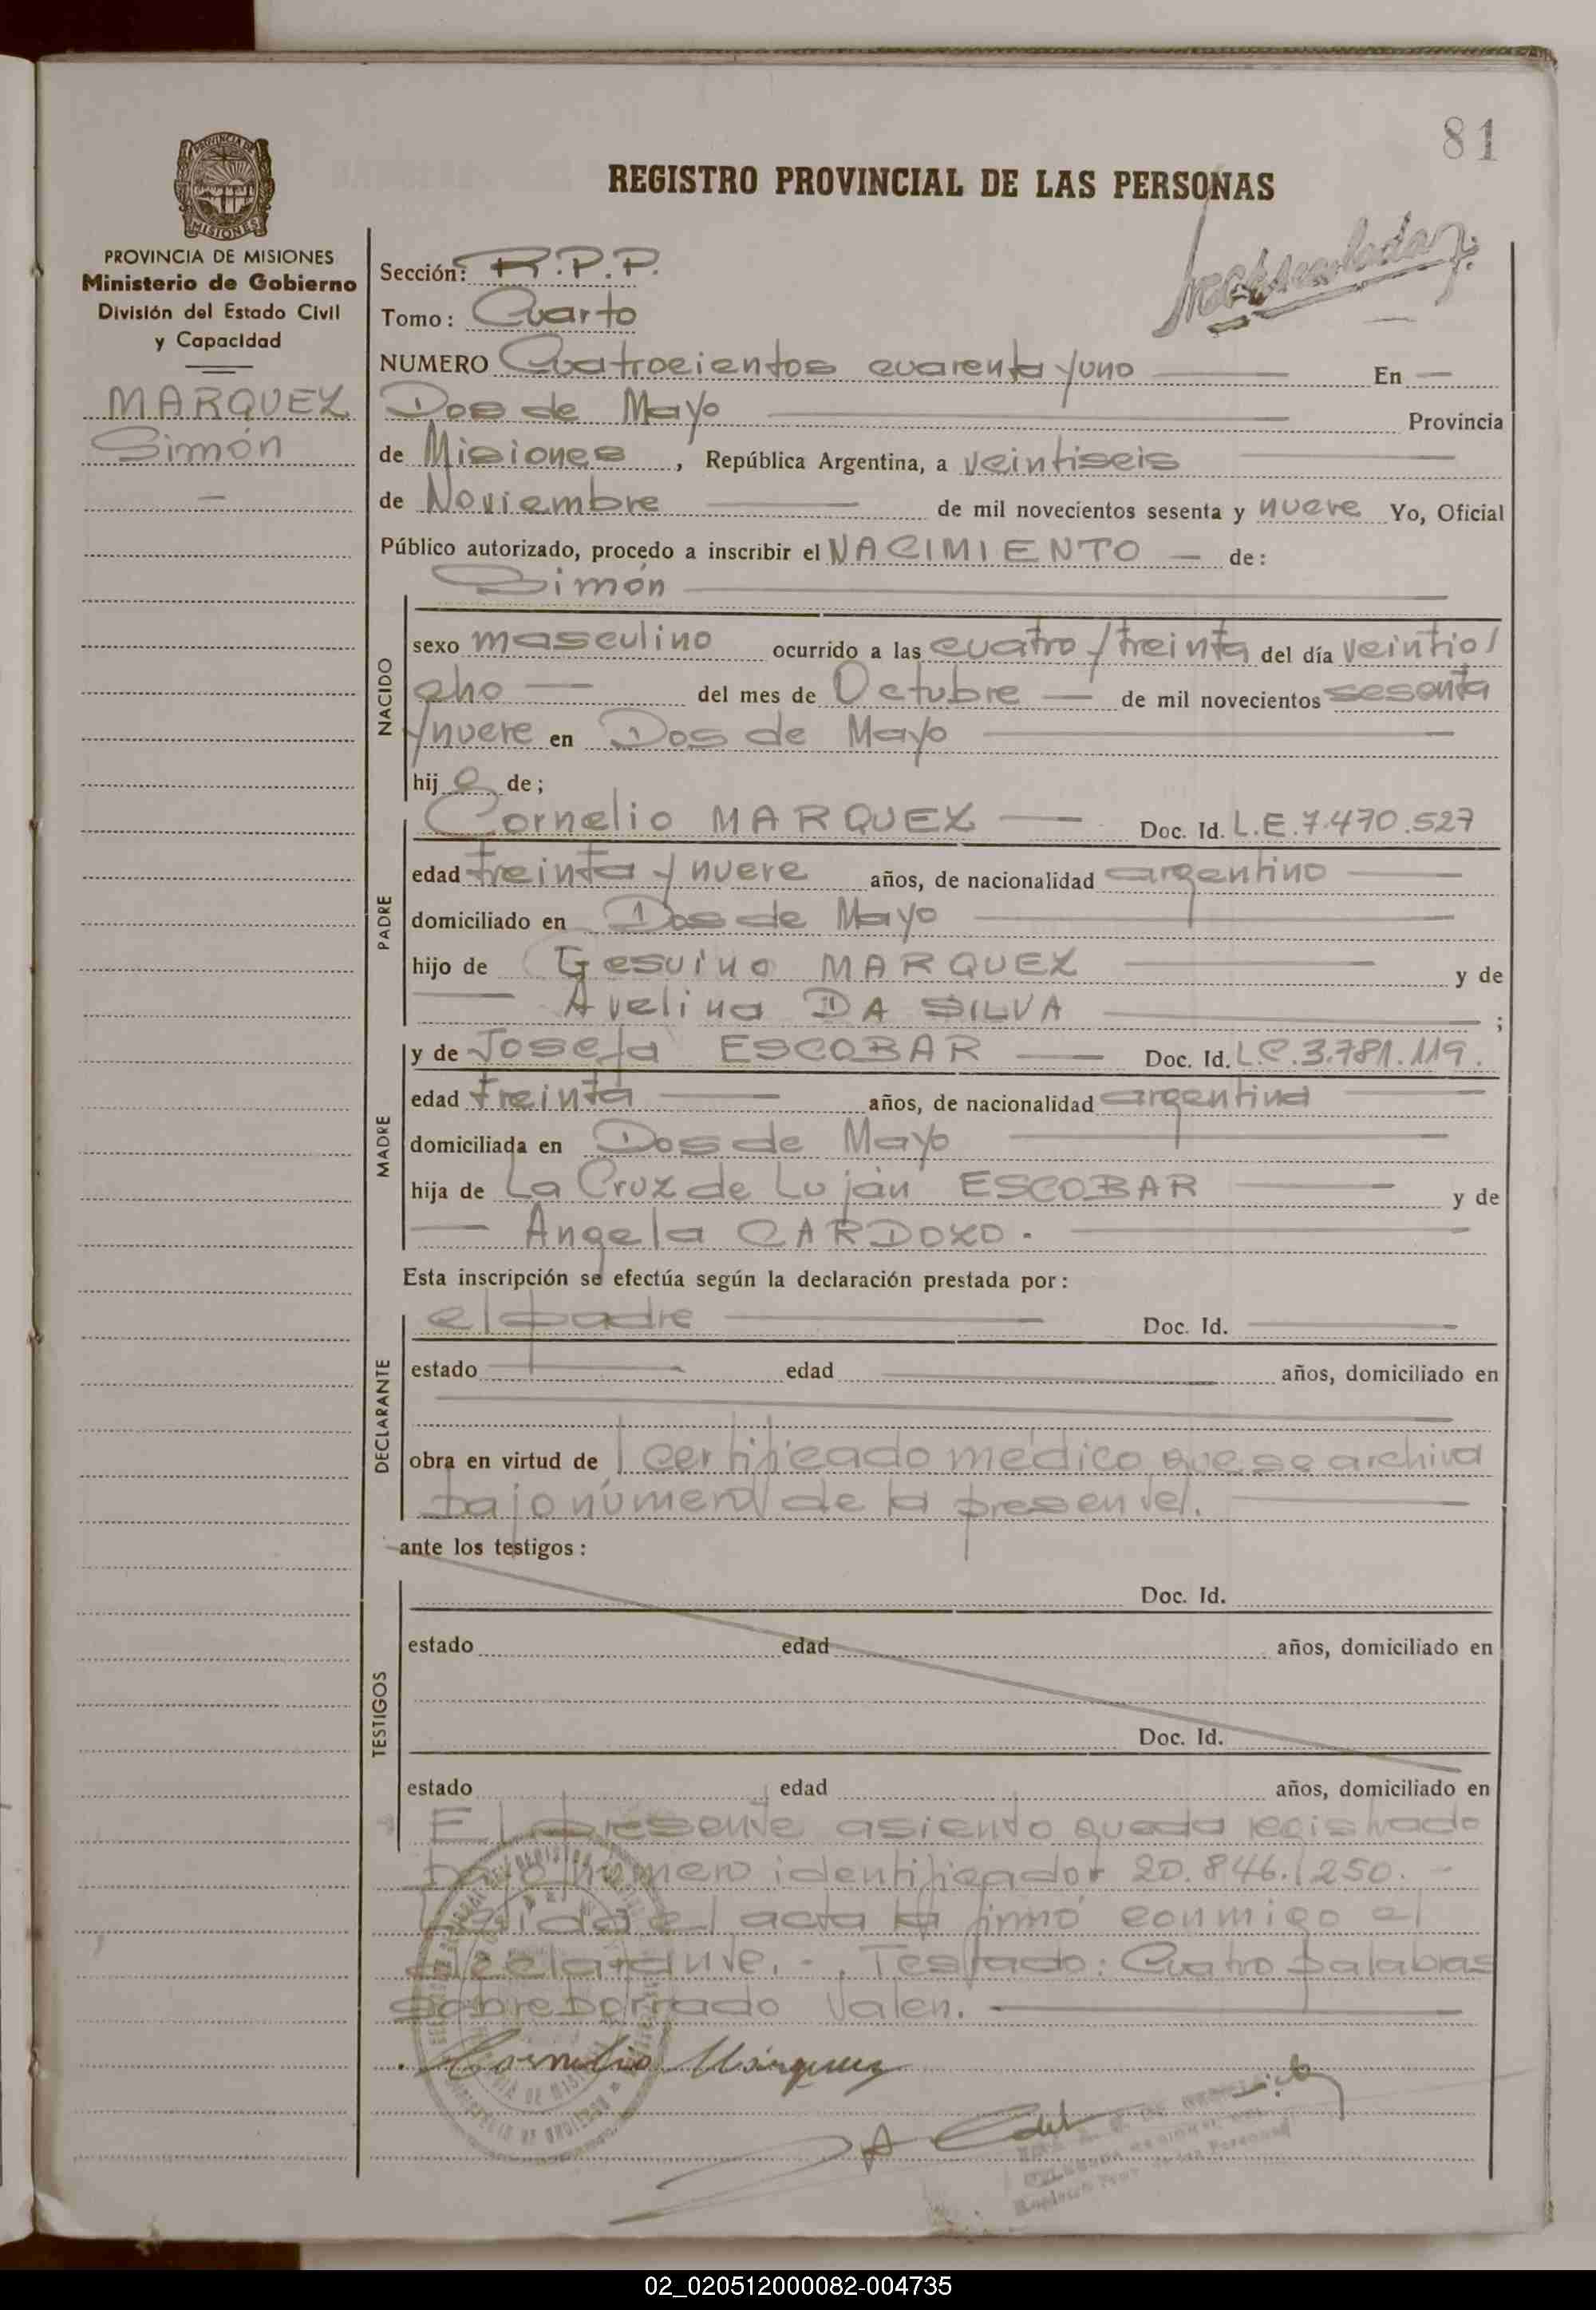 81
REGISTRO PROVINCIAL DE LAS PERSONAS
PROVINCIA DE MISIONES
Ministerio de Gobierno
División del Estado Civil
y Capacidad
MARQUEZ
Simón
Sección: R.P.P.
Tomo: Cuarto
NUMERO Cuatrocientos cuarenta y uno En
Dos de Mayo Provincia
de Misiones, República Argentina, a veintiseis
de Noviembre de mil novecientos sesenta y nueve Yo, Oficial
Público autorizado, procedo a inscribir el NACIMIENTO de:
Simón
NACIDO
sexo masculino ocurrido a las cuatro y treinta del día veintio/
cho del mes de Octubre de mil novecientos sesenta
y nueve en Dos de Mayo
hij o de;
PADRE
Cornelio MARQUEZ Doc. Id. L.E. 7.470.527
edad treinta y nueve años, de nacionalidad argentino
domiciliado en Dos de Mayo
hijo de Gesuino MARQUEZ y de
Avelina DA SILVA ;
MADRE
y de Josefa ESCOBAR Doc. Id. L.C. 3.781.119.
edad treinta años, de nacionalidad argentina
domiciliada en Dos de Mayo
hija de La Cruz de Luján ESCOBAR y de
Angela CARDOZO.
Esta inscripción se efectúa según la declaración prestada por:
DECLARANTE
el padre Doc. Id.
estado edad años, domiciliado en
obra en virtud de certificado médico que se archiva
bajo número de la presente.
ante los testigos:
TESTIGOS
Doc. Id.
estado edad años, domiciliado en
Doc. Id.
estado edad años, domiciliado en
El presente asiento queda registrado
bajo número identificador 20.846.250.-
Leída el acta la firmó conmigo el
declarante.-. Testado: Cuatro palabras
sobreborrado Valen.
Cornelio Márquez
02_020512000082-004735